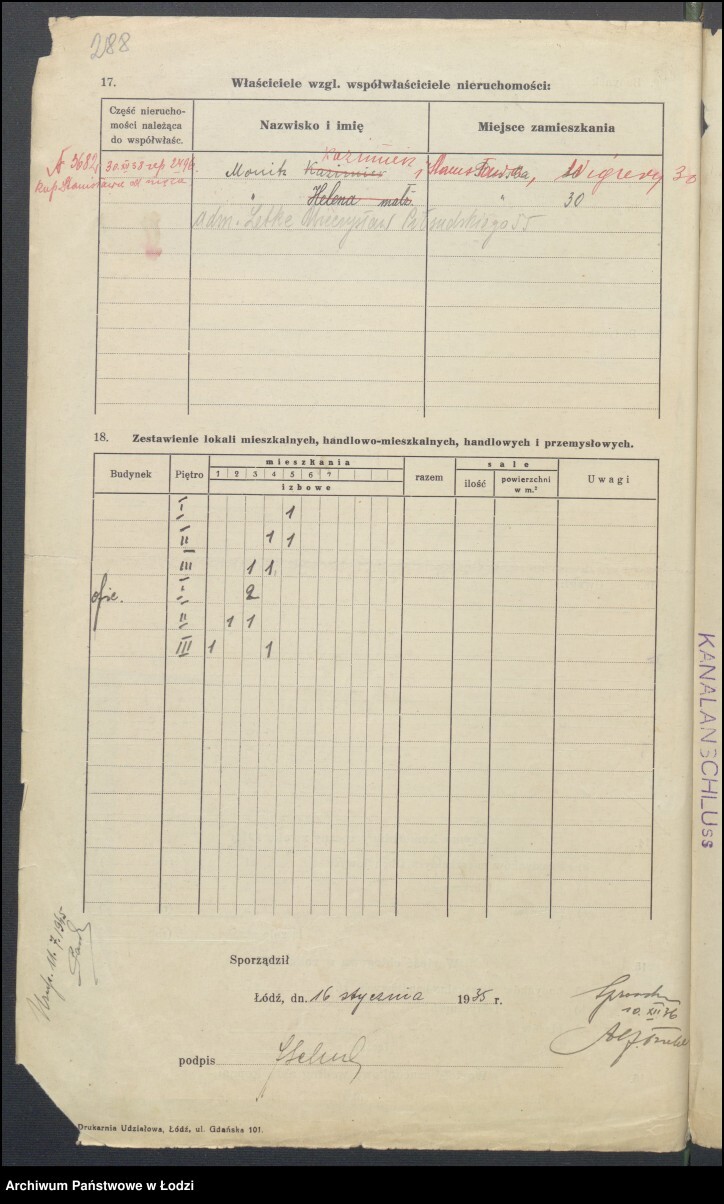 288
17. Właściciele wzgl. współwłaściciele nieruchomości:
Część nierucho-
mości należąca
do współwłaśc.
Nazwisko i imię
Miejsce zamieszkania
Kazimierz i
№ 3682, 30.VI 38 rep 2496. Monitz Kazimierz Wigrowy 30
kup. Stanisława od męża
" Helena małż. " 30
adm. Mieczysław Piłsudskiego 55
18. Zestawienie lokali mieszkalnych, handlowo-mieszkalnych, handlowych i przemysłowych.
Budynek Piętro mieszkania razem sale Uwagi
1 2 3 4 5 6 7
izbowe
ilość powierzchni
w m.²
I 1
II 1 1
III 1 1
ofic. I 2
II 1 1
III 1 1
KANALANSCHLUSS
11.7.1945
Sporządził
Łódź, dn. 16 stycznia 1935 r.
10.XII 36
podpis
Drukarnia Udziałowa, Łódź, ul. Gdańska 101.
Archiwum Państwowe w Łodzi